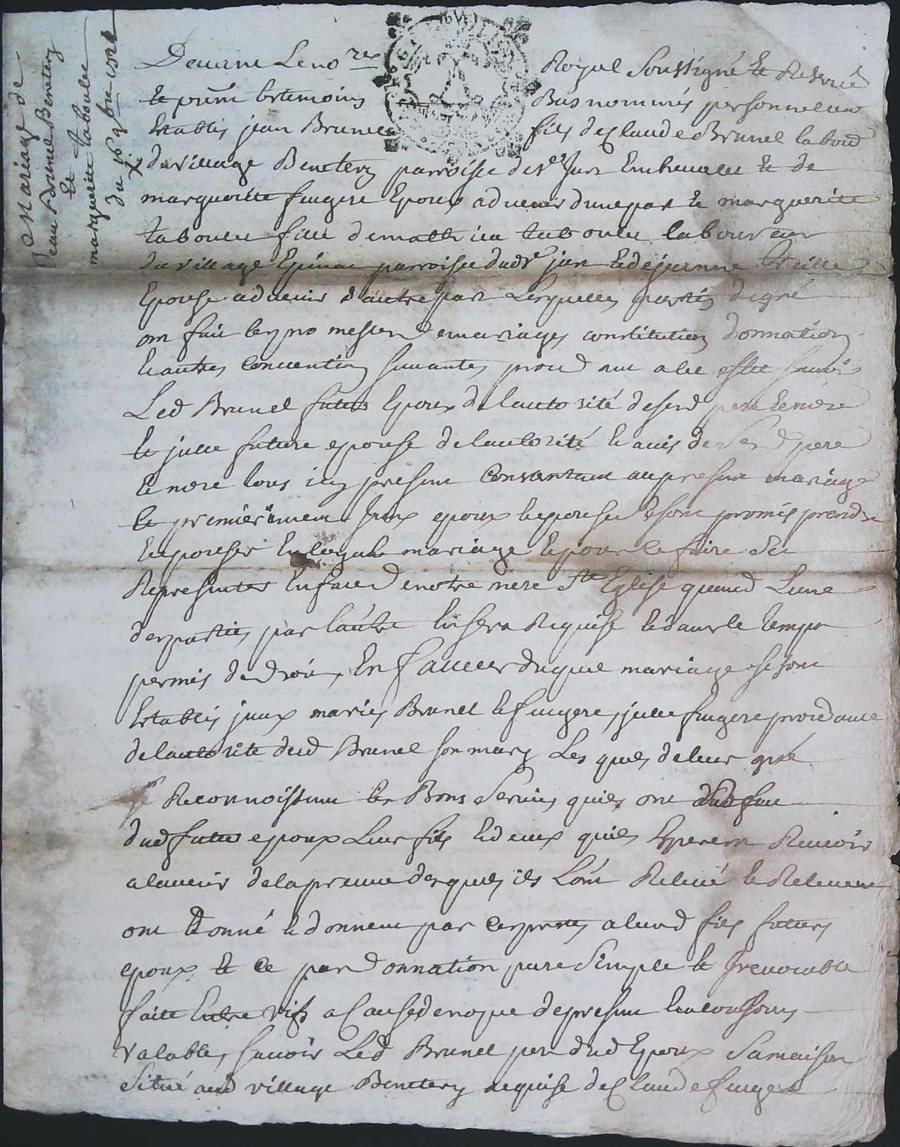 Mariage de
Jean Brunel Benetery
Et
marguerite taboulee
du 16
Devant Le no.re Royal Soussigné Et
Et presents les temoins Bas nommés personnellement
Establis jean Brunel fils de Claude Brunel labour
du village Benetery parroisse de st Jure Enhevelec et de
margueritte fugere Epoux advenir d'une part Et marguerite
taboulee fille de mathieu taboulee laboureur
du village parroisse dud st jure et de jeanne
Epouse advenir d'autre part Lesquelles parties de gré
ont fait les promesses de mariages constitution donnation
et autres convention suivantes proced
Led Brunel futur Epoux de l'autorité de sesd pere et mere
et julie future epouse de l'autorité et avis de sesd pere
et mere tous icy present consentant au present mariage
Et premierement yceux epoux et epouse se sont promis prendre
et epouser en loyal mariage Et pour le faire se
Representer En face de notre mere Ste Eglise quand L'une
des parties par l'autre En sera Requise et dans le temps
permis de droit, En faveur duquel mariage se sont
Establis yceux mariés Brunel et fugere, julie fugere procedante
de l'autorité dud Brunel son mary Les quels de leur gré
Reconnoissant les Bons Services qu'ils ont
dud futur epoux Leur fils et de ceux qu'ils Esperent Recevoir
a l'avenir de la preuve desquels ils L'ont Relevé et Relevent
ont donné et donnent par ces presentes aleurd fils futur
epoux Et ce par donnation pure Simple et Irrevocable
faite Entre vifs a Cause de noces de present
valable, savoir Led Brunel pere dud Epoux Sa maison
Situé aud village Benetery acquise de Claude fugere